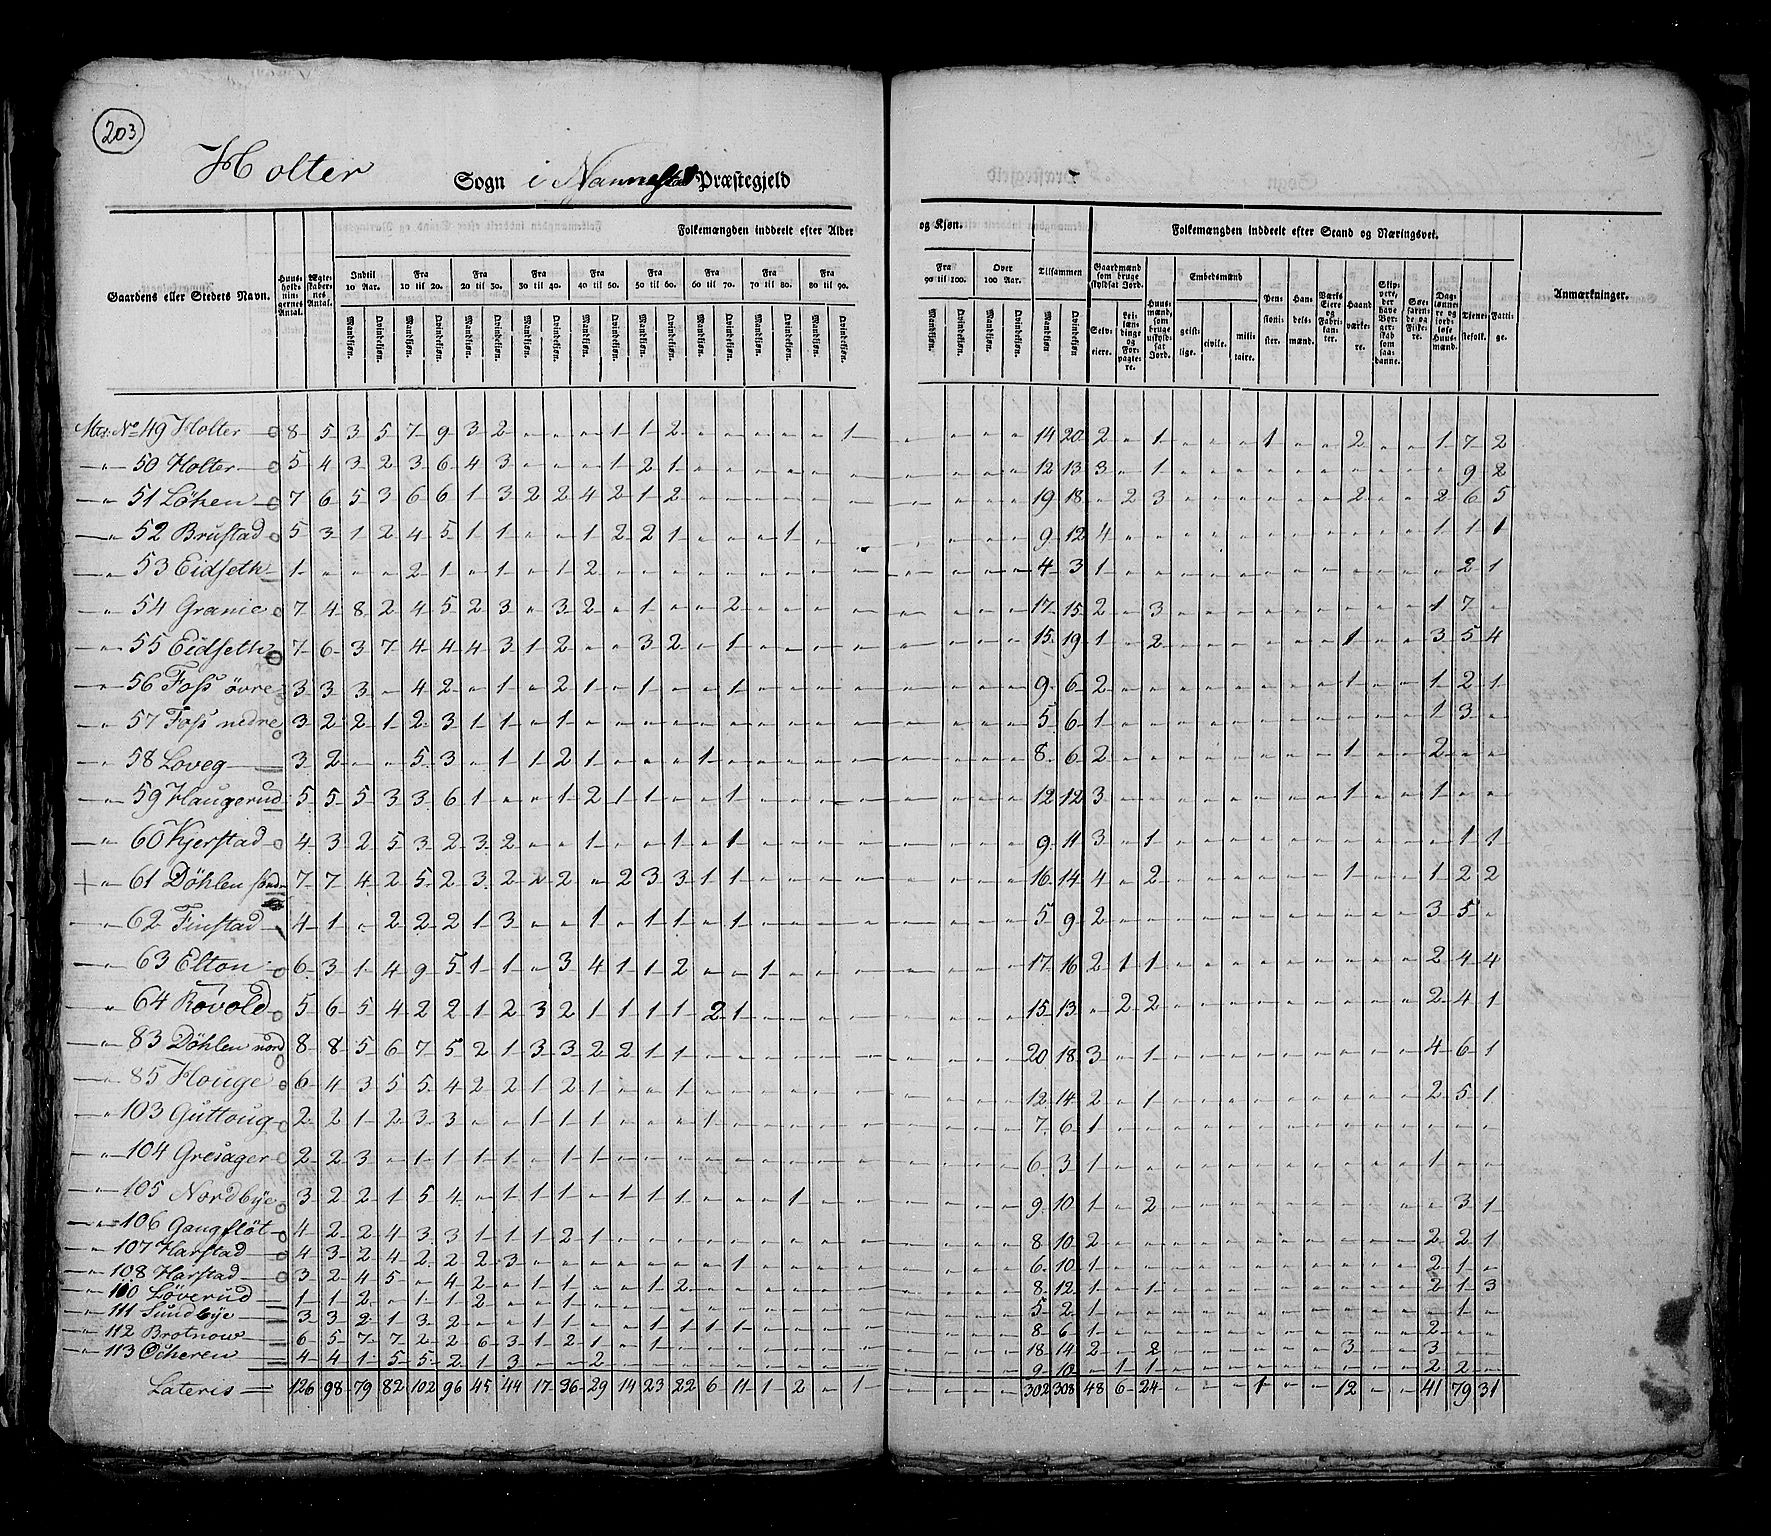 203
Holter Sogn i Nannestad Præstegjeld
Gaardens eller Stedets Navn. Huusholdningernes Antal. Ægtestabernes Antal. Folkemængden inddeelt efter Alder og Kjøn. Folkemængden inddeelt efter Stand og Næringsvei. Anmærkninger.
Indtil 10 Aar. Fra 10 til 20. Fra 20 til 30. Fra 30 til 40. Fra 40 til 50. Fra 50 til 60. Fra 60 til 70. Fra 70 til 80. Fra 80 til 90. Fra 90 til 100. Over 100 Aar. Tilsammen
Gaardmænd som bruge skyldsat Jord. Huusmænd, som bruge uskyldsat Jord. Embedsmænd Pensionister. Handelsmænd. Værks Eiere og Fabrikanter. Haandværkere. Skippere, der have Borgerskab som saadanne. Søefarende og Fiskere. Dagslønnere og jordløse Huusmænd. Tjenestefolk. Fattige.
Mandkjøn. Qvindekjøn. Selveiere. Leilændinge og Forpagtere. geistlige. civile. militaire.
Mtr. No 49 Holter 8 5 3 5 7 9 3 2 " " " 1 1 2 " " " " " 1 " " " " 14 20 2 " 1 " " " 1 " " 2 " " 1 7 2
" 50 Holter 5 4 3 2 3 6 4 3 " " " 1 2 1 " " " " " " " " " " 12 13 3 " 1 " " " " " " " " " " 9 2
" 51 Löken 7 6 5 3 6 6 1 3 2 2 4 2 1 2 " " " " " " " " " " 19 18 " 2 3 " " " " " " 2 " " 2 6 5
" 52 Brustad 5 3 1 2 4 5 1 1 " " 1 2 2 1 " " " 1 " " " " " " 9 12 4 " " " " " " " " " " " 1 1 1
" 53 Eidseth 1 " " " 2 1 " 1 " 1 2 " " " " " " " " " " " " " 4 3 1 " " " " " " " " " " " " 2 1
" 54 Granie 7 4 8 2 4 5 2 3 " 3 2 " 1 " " 2 " " " " " " " " 17 15 2 " 3 " " " " " " " " " 1 7 "
" 55 Eidseth 7 6 3 7 4 4 4 3 1 2 " " 3 2 " 1 " " " " " " " " 15 19 1 " 2 " " " " " " 1 " " 3 5 4
" 56 Foss øvre 3 3 3 " 4 2 " 1 " 2 1 " 1 " " 1 " " " " " " " " 9 6 2 " " " " " " " " 1 " " 1 2 1
" 57 Foss nedre 3 2 2 1 2 3 1 1 " 1 " " " " " " " " " " " " " " 5 6 1 " " " " " " " " " " " 1 3 "
" 58 Loveg 3 2 " " 5 3 " 1 1 2 1 " " " 1 " " " " " " " " " 8 6 2 " " " " " " " " 1 " " 2 " "
" 59 Haugerud 5 5 5 3 3 6 1 " " 1 2 1 1 " " 1 " " " " " " " " 12 12 3 " " " " " " " " 1 " " 1 " "
" 60 Kjerstad 4 3 2 5 3 2 3 2 " " 1 " " 1 " 1 " " " " " " " " 9 11 3 " 1 " " " " " " " " " " 1 1
" 61 Döhlen söndr 7 7 4 2 5 2 3 2 " 2 " 2 3 3 1 1 " " " " " " " " 16 14 4 " 2 " " " " " " 1 " " 1 2 2
" 62 Finstad 4 1 " 2 2 2 1 3 " " 1 " 1 1 " 1 " " " " " " " " 5 9 2 " " " " " " " " " " " 3 5 "
" 63 Elton 6 3 1 4 9 5 1 1 " 3 4 1 1 2 " " 1 " " " " " " " 17 16 2 1 1 " " " " " " " " " 2 4 4
" 64 Rovold 5 6 5 4 2 2 1 2 3 2 1 1 1 1 2 1 " " " " " " " " 15 13 " 2 2 " " " " " " " " " 2 4 1
" 83 Döhlen nord 8 8 5 6 7 5 2 1 3 3 2 2 1 1 " " " " " " " " " " 20 18 3 " 1 " " " " " " " " " 4 6 1
" 85 Houge 6 4 3 5 5 4 2 2 1 2 1 " " 1 " " " " " " " " " " 12 14 2 " 1 " " " " " " " " " 2 5 1
" 103 Guttoug 2 2 1 2 3 3 " " 1 1 1 " " " 1 " " " " " " " " " 7 6 1 " " " " " " " " " " " " " "
" 104 Gresager 2 2 3 " 1 1 1 1 " 1 1 " " " " " " " " " " " " " 6 3 1 " " " " " " " " " " " 1 " "
" 105 Nordbye 3 2 2 1 5 4 " 1 1 1 " 1 1 1 " " " 1 " " " " " " 9 10 1 " 2 " " " " " " " " " " 3 1
" 106 Gangflöt 4 2 2 4 3 3 1 1 1 2 1 " " " " " " " " " " " " " 8 10 2 " " " " " " " " " " " 2 2 1
" 107 Harstad 4 3 2 4 2 2 2 3 " " " " " " " 1 " " " " " " " " 6 10 1 " " " " " " " " " " " 2 1 "
" 108 Harstad 3 2 4 5 " 4 2 " 1 1 " " 1 2 " " " " " " " " " " 8 12 1 " 1 " " " " " " " " " 2 1 3
" 110 Löverud 1 1 2 " 1 1 2 " " 1 " " " " " " " " " " " " " " 5 2 1 " " " " " " " " " " " " 1 "
" 111 Sundbye 3 3 2 1 3 2 " " 1 " " 1 1 1 1 " " " " " " " " " 8 6 1 " " " " " " " " " " " 2 " "
" 112 Brotnow 6 5 7 7 2 2 6 3 1 2 1 " 1 " " " " " " " " " " " 18 14 2 " 2 " " " " " " 3 " " 3 " "
" 113 Ocheren 4 4 1 5 5 2 1 3 " " 2 " " " " " " " " " " " " " 9 10 " 1 1 " " " " " " " " " 2 2 "
Lateris 126 98 79 82 102 96 45 44 17 36 29 14 23 22 6 11 1 2 " 1 " " " " 302 308 48 6 24 " " " 1 " " 12 " " 41 79 31